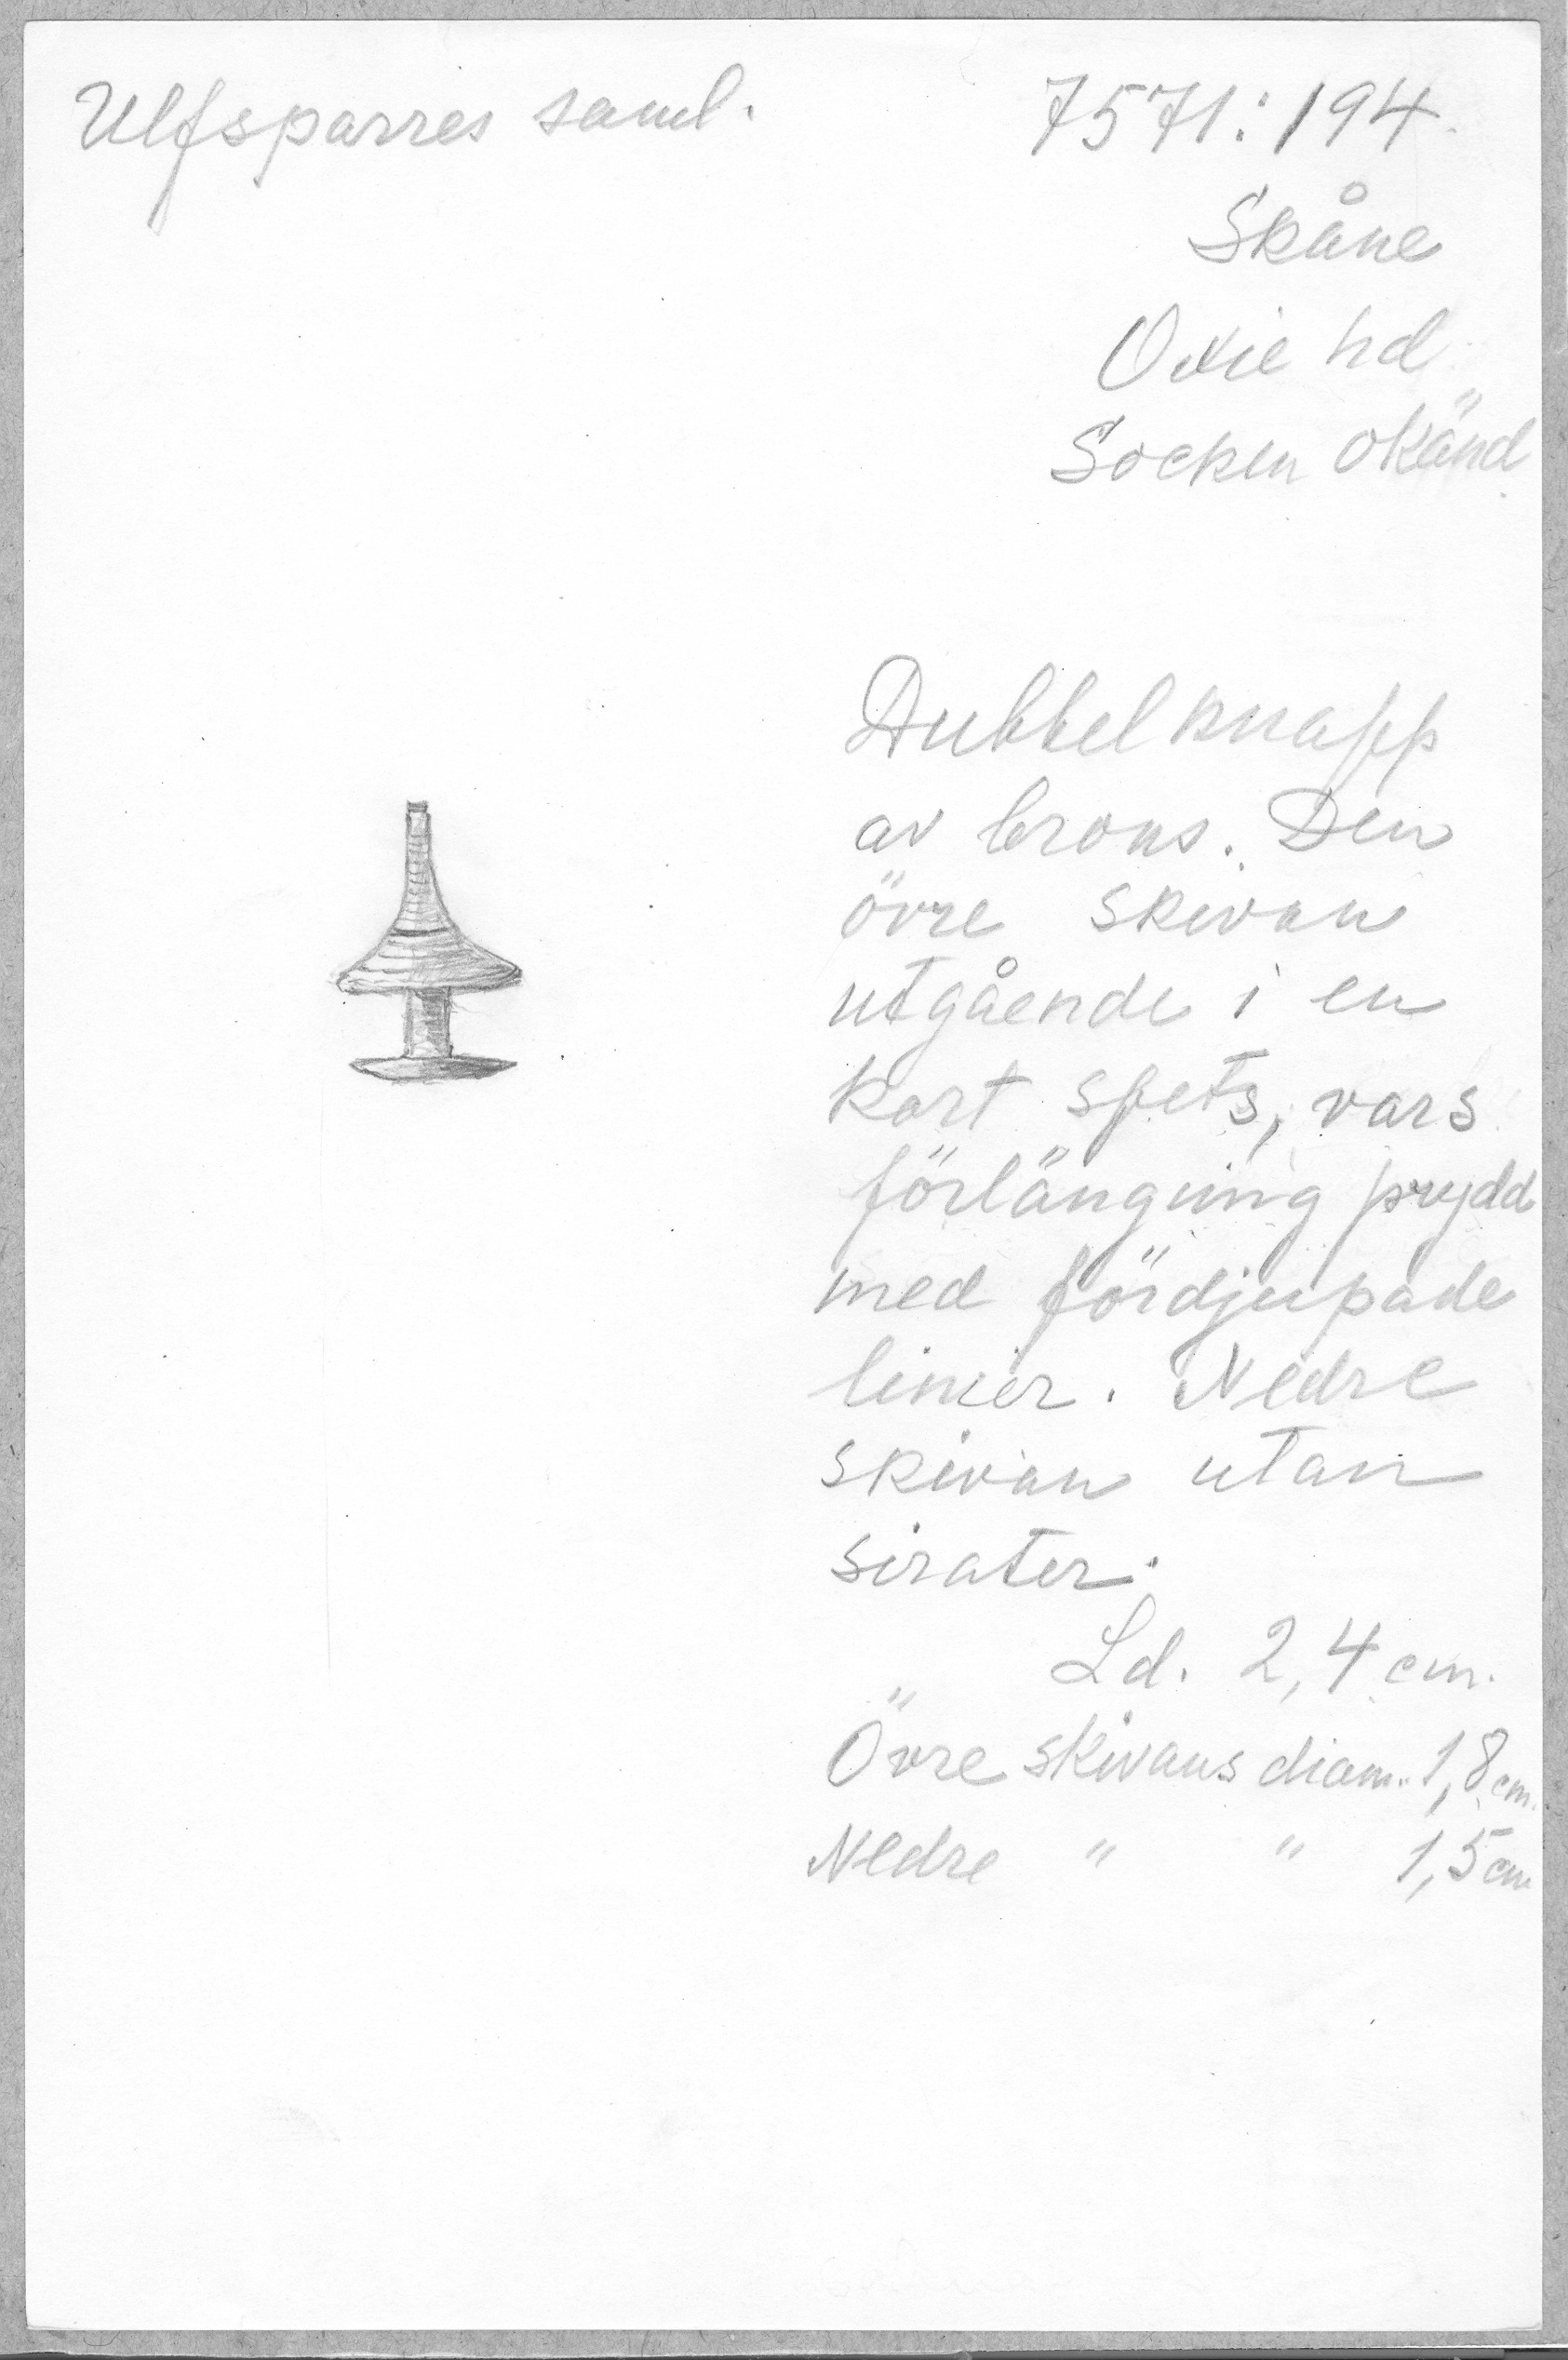 Ulfsparres saml.
7571:194.
Skåne
Oxie hd
Socken okänd
Dubbelknapp
av brons. Den
övre skivan
utgående i en
kort spets, vars
förlängning prydd
med fördjupade
linier. Nedre
skivan utan
sirater.
Ld. 2,4 cm.
Övre skivans diam. 1,8 cm.
Nedre " " 1,5 cm